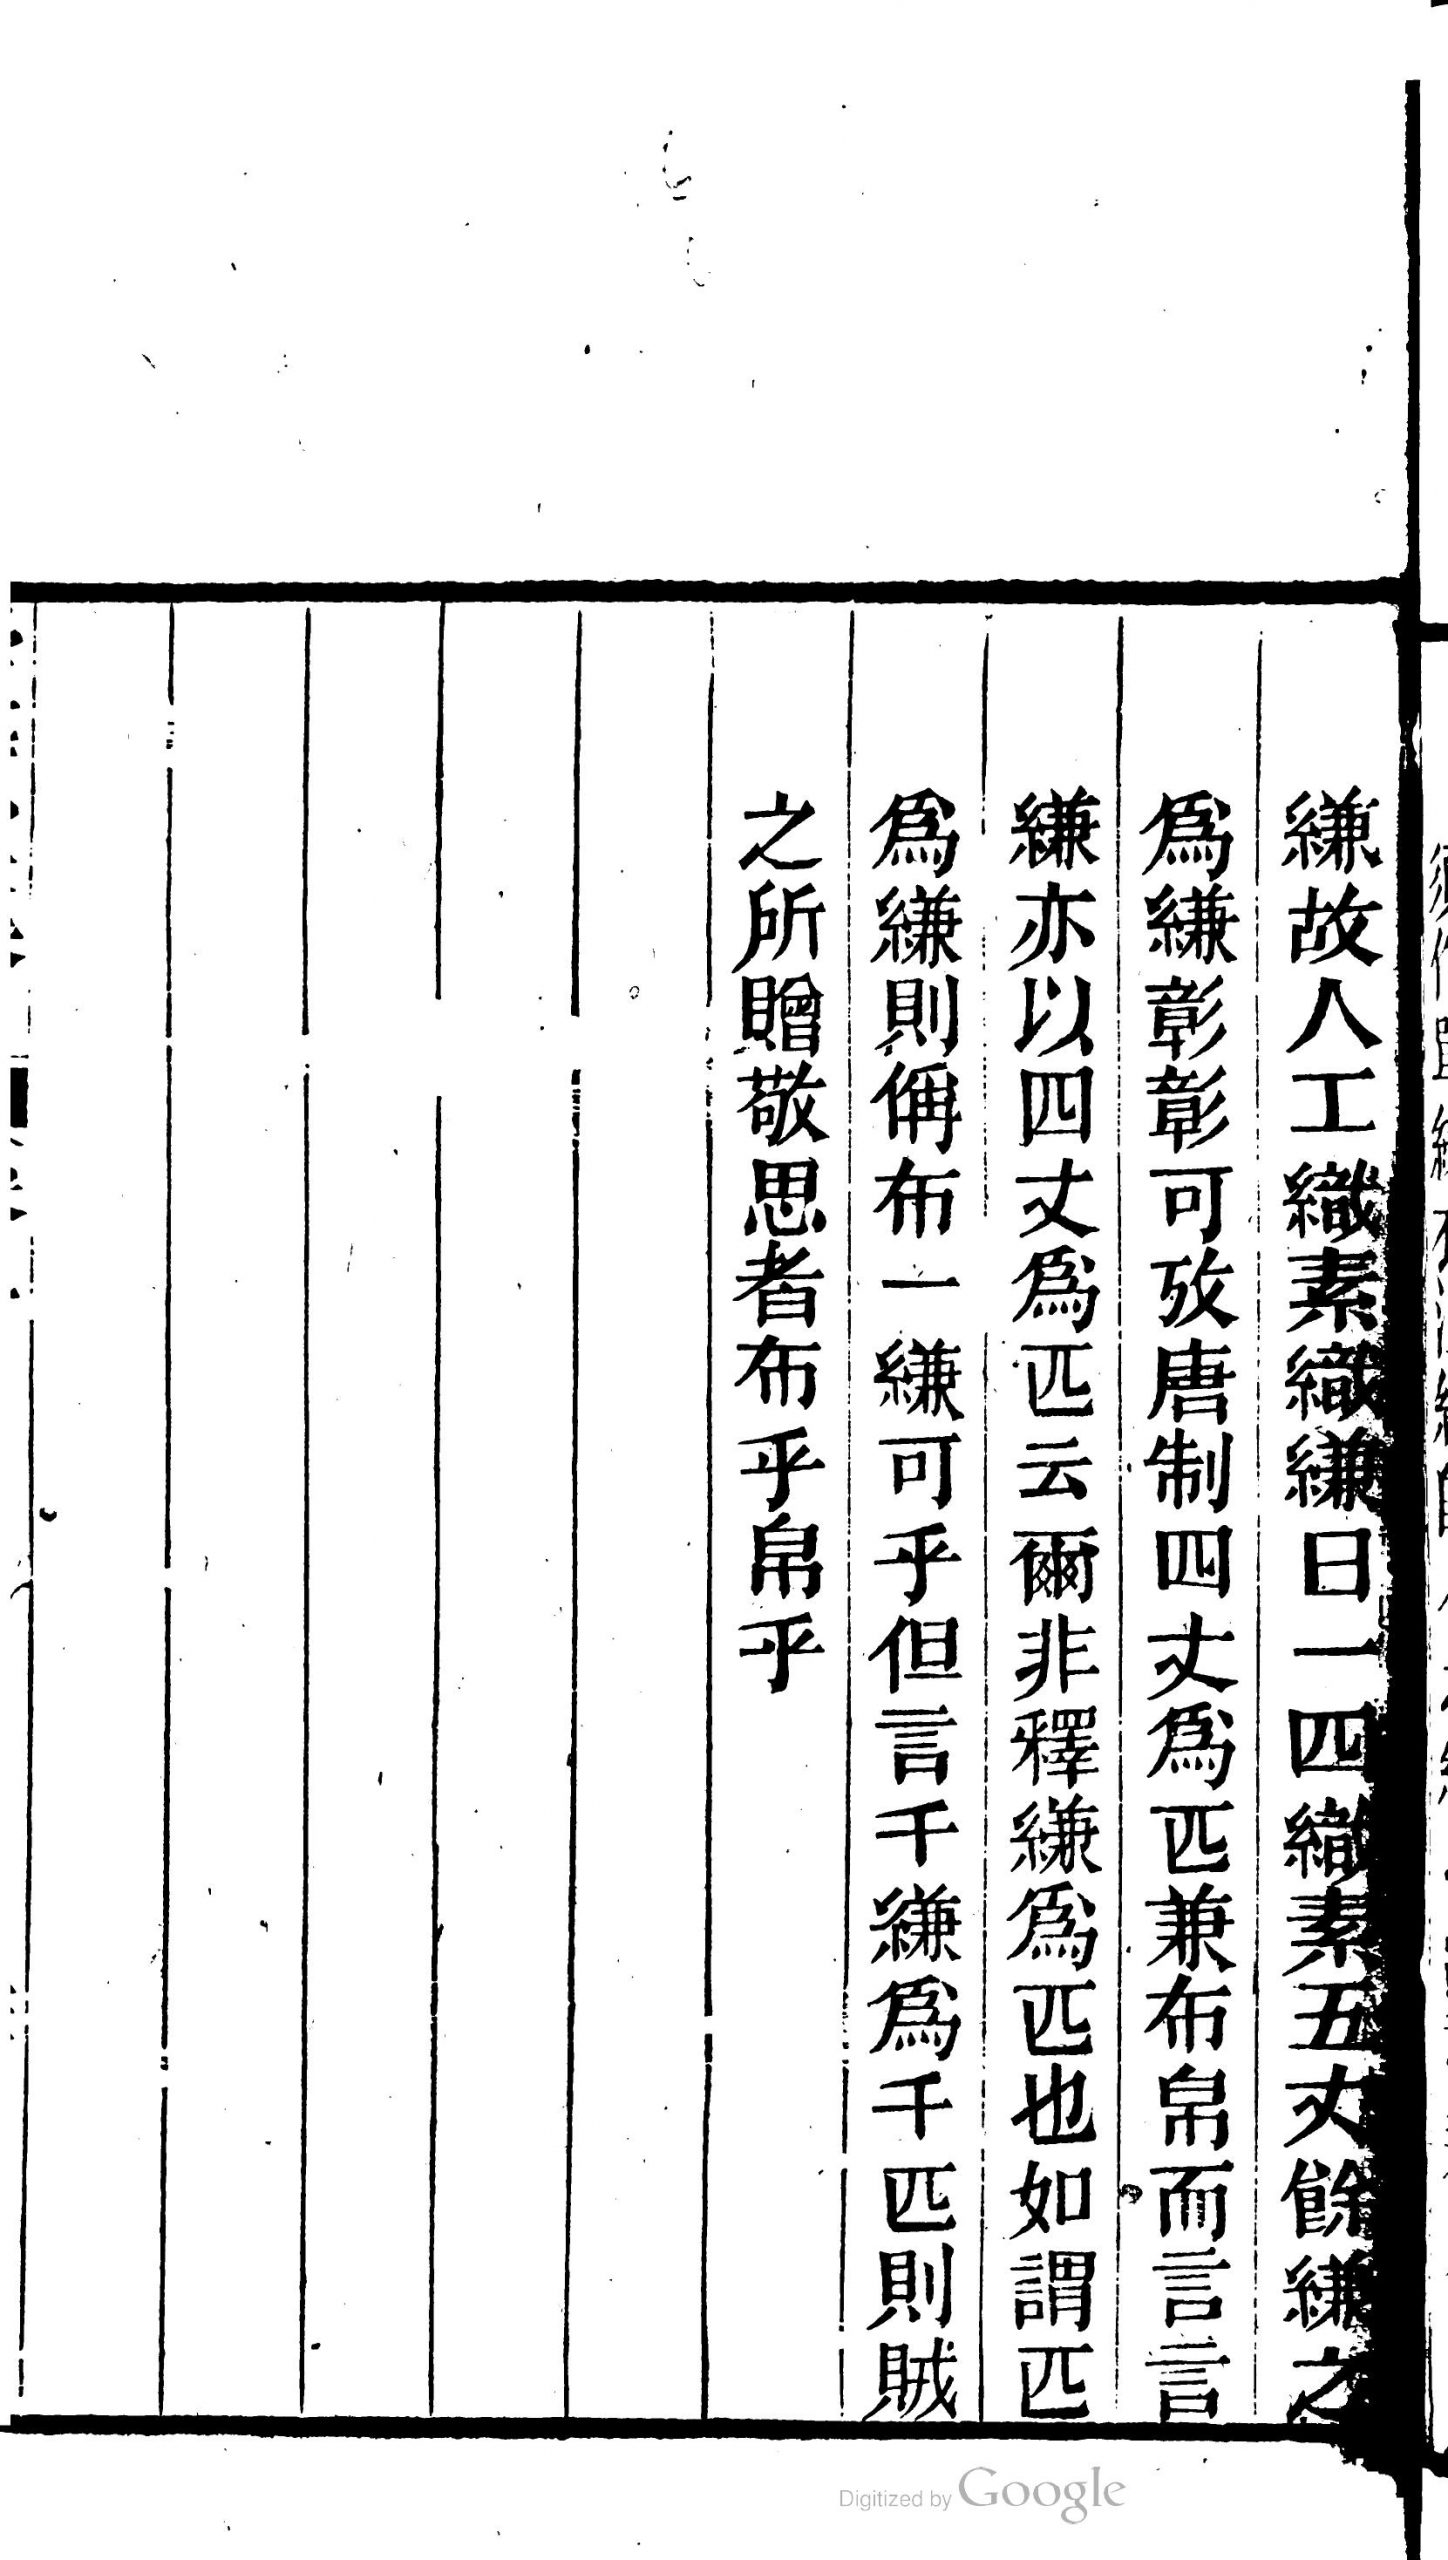 縑故人工織素織縑日一匹織素五丈餘縑之
爲縑彰彰可攷唐制四丈爲匹兼布帛而言言
縑亦以四丈爲匹云爾非釋縑爲匹也如謂匹
爲縑則偁布一縑可乎但言千縑爲千匹則賊
之所贈敬思者布乎帛乎
Digitized by Google